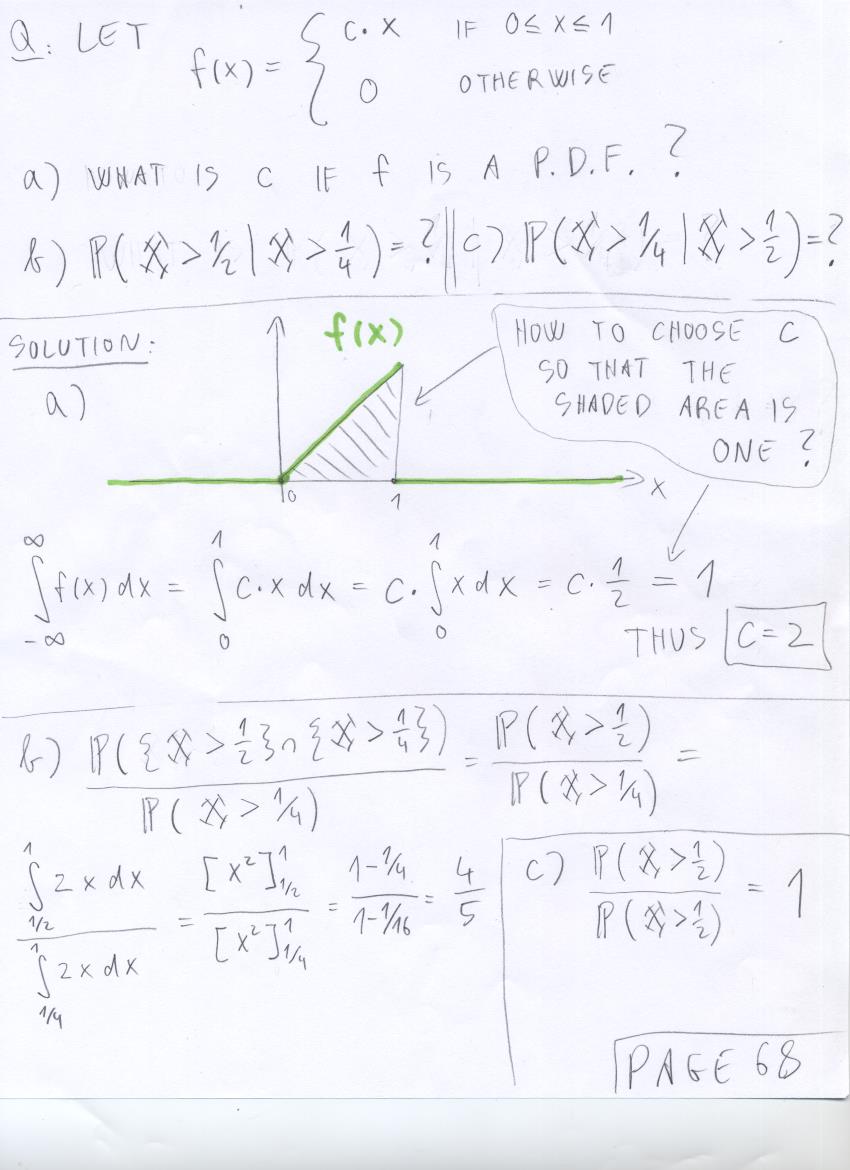 Q: LET f(x) = { c·x IF 0≤x≤1
0 OTHERWISE
a) WHAT IS c IF f IS A P.D.F.?
b) ℙ(X > 1/2 | X > 1/4) = ? || c) ℙ(X > 1/4 | X > 1/2) = ?
SOLUTION:
a)
f(x)
0
1
x
HOW TO CHOOSE C
SO THAT THE
SHADED AREA IS
ONE?
∫_{-∞}^{∞} f(x) dx = ∫_0^1 c·x dx = c·∫_0^1 x dx = c·1/2 = 1
THUS C=2
b) ℙ({X > 1/2} ∩ {X > 1/4}) / ℙ(X > 1/4) = ℙ(X > 1/2) / ℙ(X > 1/4) =
∫_{1/2}^1 2x dx / ∫_{1/4}^1 2x dx = [x²]_{1/2}^1 / [x²]_{1/4}^1 = (1-1/4) / (1-1/16) = 4/5
c) ℙ(X > 1/2) / ℙ(X > 1/2) = 1
PAGE 68